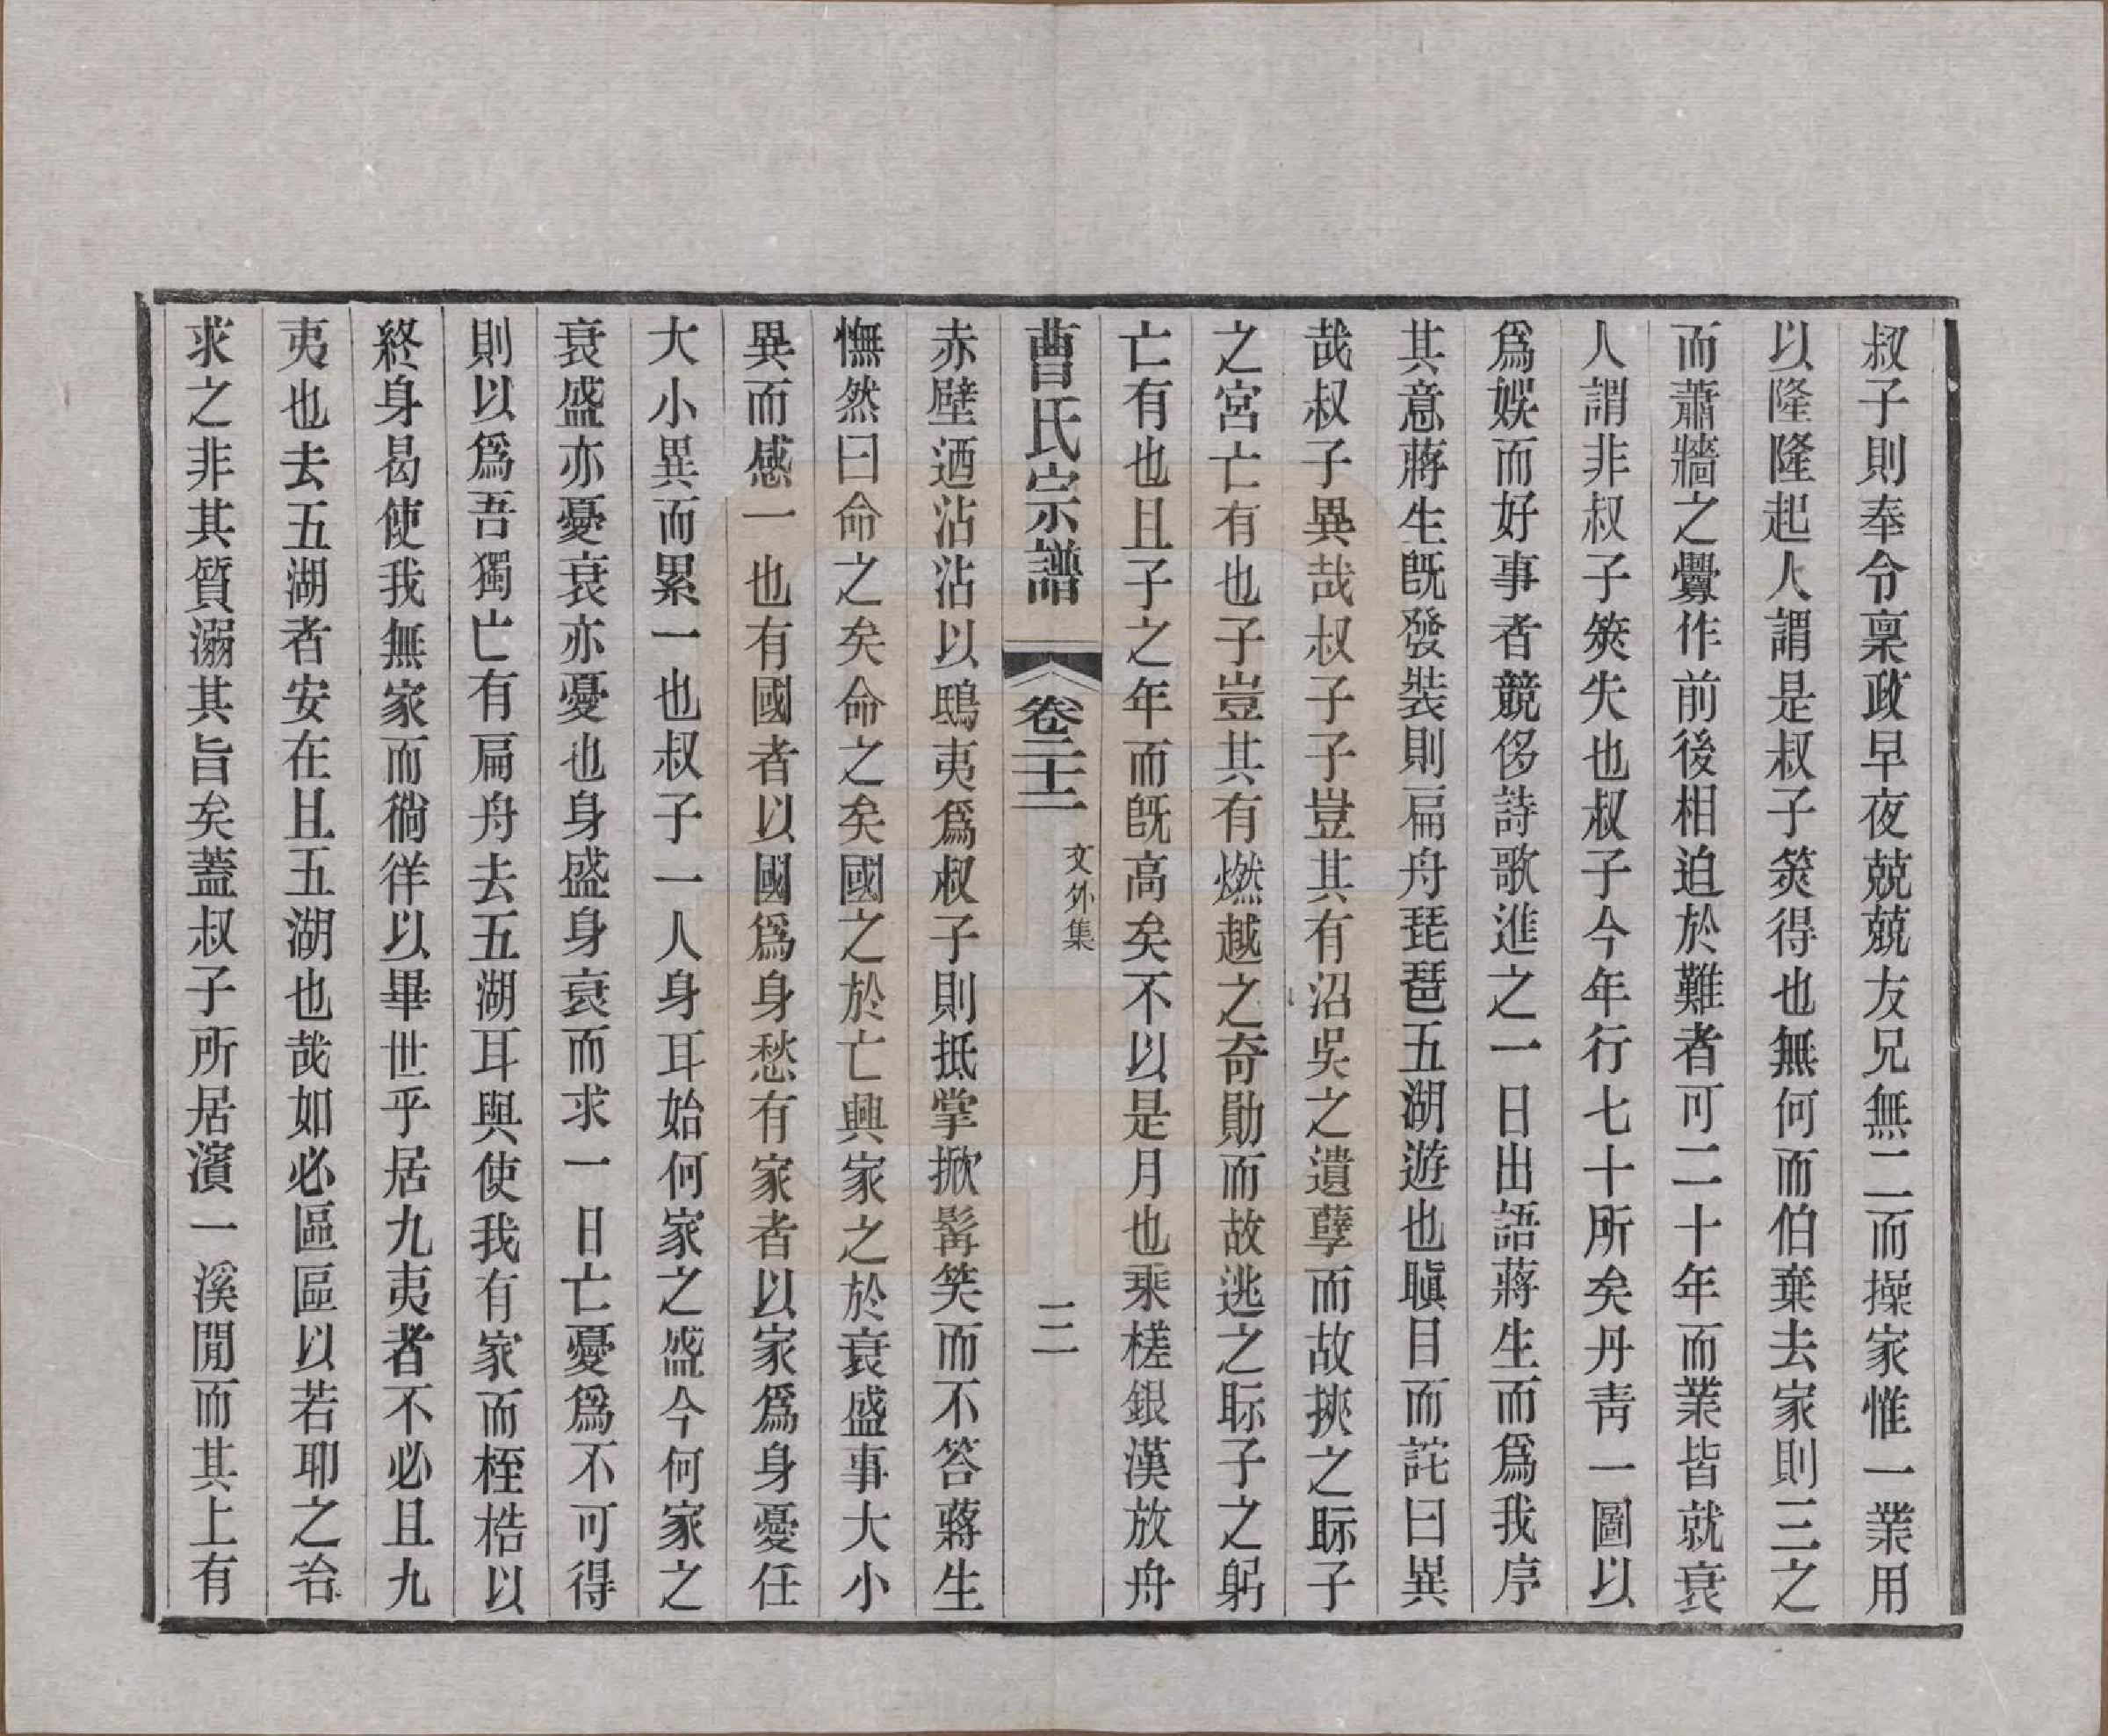 叔子則奉令稟政早夜兢兢友兄無二而操家惟一業用
以隆隆起人謂是叔子筴得也無何而伯棄去家則三之
而蕭牆之釁作前後相迫於難者可二十年而業皆就衰
人謂非叔子筴失也叔子今年行七十所矣丹靑一圖以
爲娛而好事者競侈詩歌進之一日出語蔣生而爲我序
其意蔣生旣發裝則扁舟琵琶五湖遊也瞋目而詫曰異
哉叔子異哉叔子子豈其有沼吳之遺孽而故挾之䀼子
之宮亡有也子豈其有燃越之奇勛而故逃之䀼子之躬
亡有也且子之年而旣高矣不以是月也乘槎銀漢放舟
曹氏宗譜 卷二十二 文外集 三
赤壁迺沾沾以鴟夷爲叔子則抵掌掀髯笑而不答蔣生
憮然曰命之矣命之矣國之於亡興家之於衰盛事大小
異而感一也有國者以國爲身愁有家者以家爲身憂任
大小異而累一也叔子一人身耳始何家之盛今何家之
衰盛亦憂衰亦憂也身盛身衰而求一日亡憂爲不可得
則以爲吾獨亡有扁舟去五湖耳與使我有家而桎梏以
終身曷使我無家而徜徉以畢世乎居九夷者不必且九
夷也去五湖者安在且五湖也哉如必區區以若耶之㕣
求之非其質溺其旨矣蓋叔子所居濱一溪閒而其上有